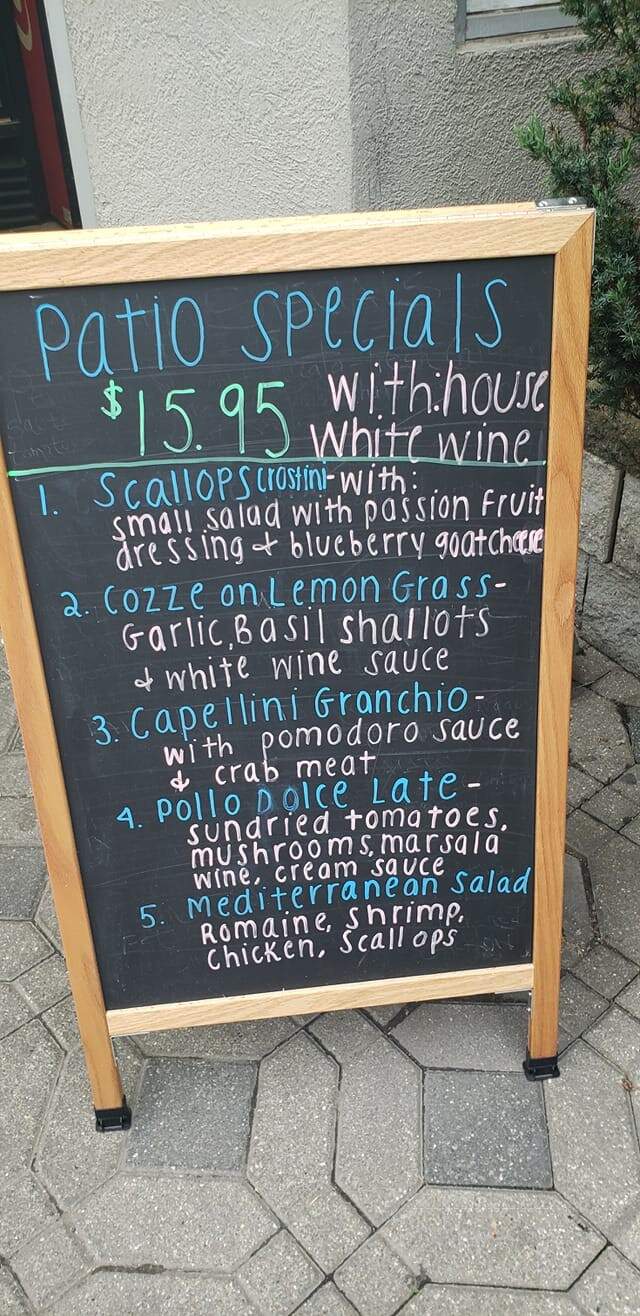 Patio Specials
$15.95 with: house
white wine
1. Scallops crostini - with:
small salad with passion fruit
dressing & blueberry goat cheese
2. Cozze on Lemon Grass -
Garlic, Basil shallots
& white wine sauce
3. Capellini Granchio -
with pomodoro sauce
& crab meat
4. Pollo Dolce Late -
sundried tomatoes,
mushrooms, marsala
wine, cream sauce
5. Mediterranean Salad
Romaine, shrimp,
chicken, scallops